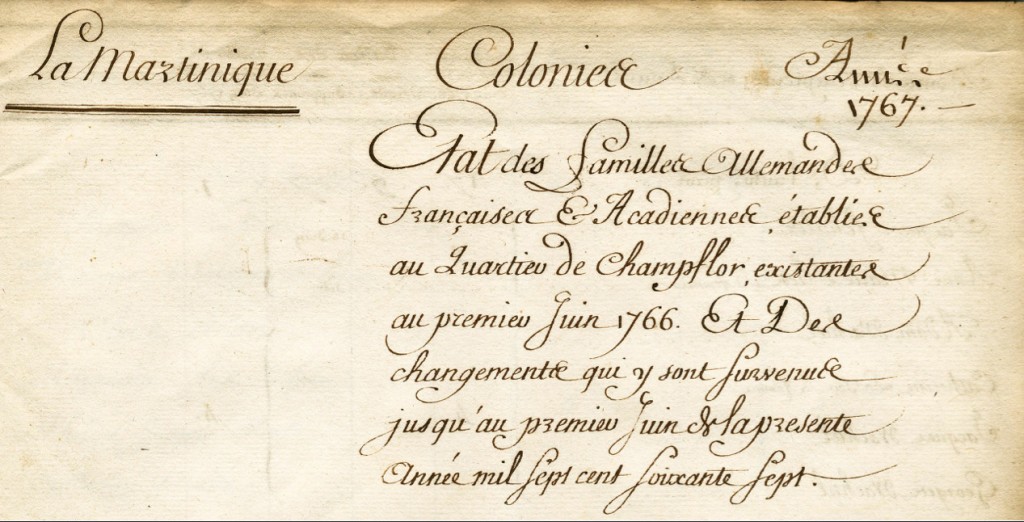 La Martinique
Colonies
Année
1767.
Etat des familles Allemandes
françaises & Acadiennes, établies
au Quartier de Champflor, existantes
au premier Juin 1766. Et Des
changements qui y sont survenus
jusqu'au premier Juin de la presente
Année mil sept cent soixante sept.